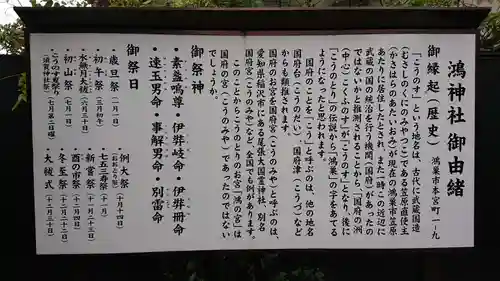 鴻神社御由緒
鴻巣市本宮町一-九
御縁起(歴史)
「こうのす」という地名は、古代に武蔵国造
(むさしのくにのみやつこ)である笠原直使主
(かさはらのあたいおみ)が現在の鴻巣市笠原
あたりに居住したとされ、また一時この近辺に
武蔵の国の統治を行う機関(国府)があったの
ではないかと推測されることから、「国府の洲
(中心)こくふのす」が「こうのす」となり、後に
「こうのとり」の伝説から「鴻巣」の字をあてる
ようになったと思われます。
国府のことを「こう」と呼ぶのは、他の地名
国府台(こうのだい)国府津(こうづ)など
からも類推されます。
国府のお宮を国府宮(こうのみや)と呼ぶのは、
愛知県稲沢市にある尾張大国霊神社、別名
国府宮(こうのみや)など、全国でも例があります。
このことからこうのとりのお宮「鴻の宮」は
国府の宮(こうのみや)であったのではない
でしょうか。
御祭神
・素盞嗚尊・伊弉岐命・伊弉冊命
・速玉男命・事解男命・別雷命
御祭日
・歳旦祭(一月一日)
・初午祭(三月初午)
・水無月大祓(六月三十日)
・初山祭(七月一日)
・こうのす夏祭り(須賀神社祭り)(七月第二日曜)
・例大祭(おおとり祭)(十月十四日)
・七五三寿祭(十一月)
・新嘗祭(十一月二十三日)
・酉の市祭(十二月四日)
・冬至祭(十二月二十二日)
・大祓式(十二月三十一日)